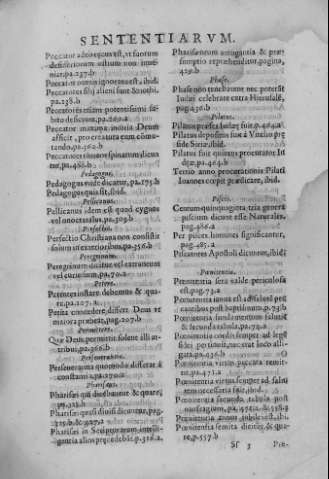 SENTENTIARVM.
Peccator adeo cæcus est, vt suorum
defectorum ostium non inue-
niat, pa.237.b
Peccatores omnia ignorare est, ibid.
Peccatores filij alieni sunt & nothi,
pa.238.b
Peccatores etiam potentissimi
bito deficiunt, pa.
Peccator maxima iniuria Deum
afficit, pro creatura eum
tendo, pa.362.b
Peccatores spinarum dicun
tur, pa.488.b
Pedagogus.
Pedagogus unde dicatur, pa.175.b
Pedagogus quis sit, ibid.
Pellicanus.
Pellicanus idem est quod cygnus
vel onocratalus, pa.309.b
Perfectio.
Perfectio Christiana non consistit
solum in exterioribus, pa.356.b
Peregrinum.
Peregrinum dicitur vel extraneum
vel curiosum, pa.70.a
Petere.
Petentes instare debemus & qua-
re, pa.127.a
Petita concedere differt Deus vt
maiora præbeat, pag.207.b
Permittere.
Quæ Deus permittit solent illi at-
tribui, pa.266.b
Perseuerantia.
Perseuerantia quomodo differat à
constantia, pa.270.a
Pharisæi.
Pharisæi qui dicebantur & quare,
pa.328.b
Pharisæi quasi diuisi dicuntur, pag.
329.b & 427.a
Pharisæi in Scripturarum intelli-
gentia alios præcedebāt. p.328.a.
Pharisæorum arrogantia & præ-
sumptio reprehenditur, pagina,
429.b
Phase.
Phase non tenebantur nec poterāt
Iudæi celebrare extra Hierusalē,
pag.436.b
Pilatus.
Pilatus præses Iudææ fuit p.484.a
Pilatus depositus fuit à Vitelio præ
side Syriæ, ibid.
Pilatus fuit quintus procurator Iu
deæ, pa.484.b
Tertio anno procurationis Pilati
Ioannes cœpit prædicare, ibid.
Piscis.
Centum quinquaginta tria genera
piscium dicunt esse Naturales.
pag.486.a
Per pisces homines significantur,
pag.485.a
Piscatores Apostoli dicuntur, ibid.
Pœnitentia.
Pœnitentia sera valde periculosa
est, pag.73.a
Pœnitentia iouis est
cantibus post baptismum, p.73.b
Pœnitentia fundamentum salutis
& secunda tabula, pa.74.a
Pœnitentia condu semper ad
pa.036.b
Pœnitentia virtus peccata remit-
tit, pa.471.a
Pœnitentia virtus semper ad salu-
tem necessaria fuit, ibid.
Pœnitentia secunda tabula post
naufragium, pa,471.a, & 558.b
Pœnitentia annus iubilæi est, ibi.
Pœnitentia semita dicitur, & qua-
re, p.557.b
Sf 3 Pœ-